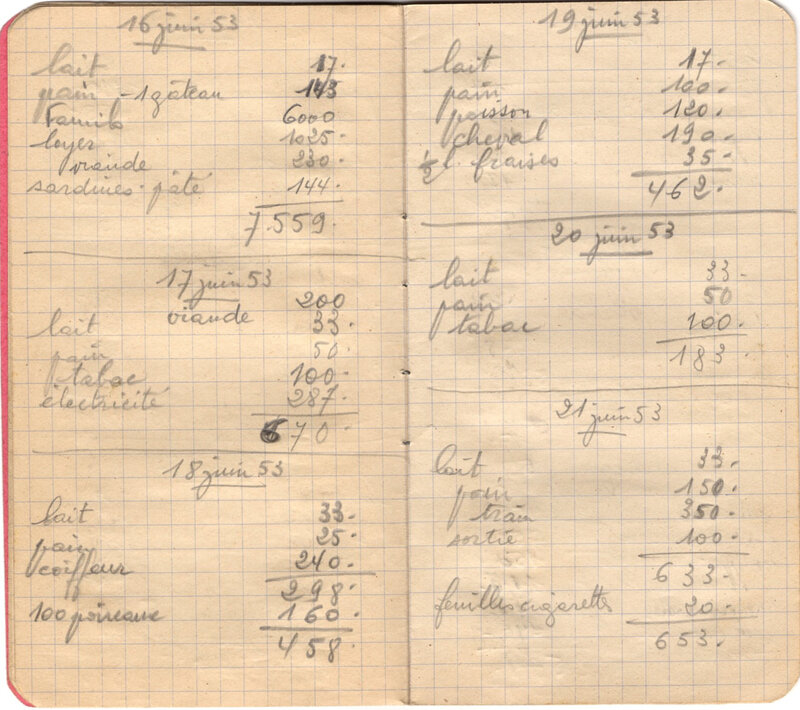 16 juin 53
lait 17.
pain - 1 gâteau 143
Famila 6000
loyer 1025.
viande 230.
sardines - pâté 144.
7.559.
17 juin 53
viande 200
lait 33.
pain 50.
tabac 100.
électricité 287.
670.
18 juin 53
lait 33.
pain 25.
coiffeur 240.
298.
100 poireaux 160.
458.
19 juin 53
lait 17.
pain 100.
poisson 120.
cheval 190.
½ l. fraises 35.
462.
20 juin 53
lait 33.
pain 50
tabac 100.
183.
21 juin 53
lait 33.
pain 150.
train 350.
sortie 100.
633.
feuilles cigarettes 20.
653.